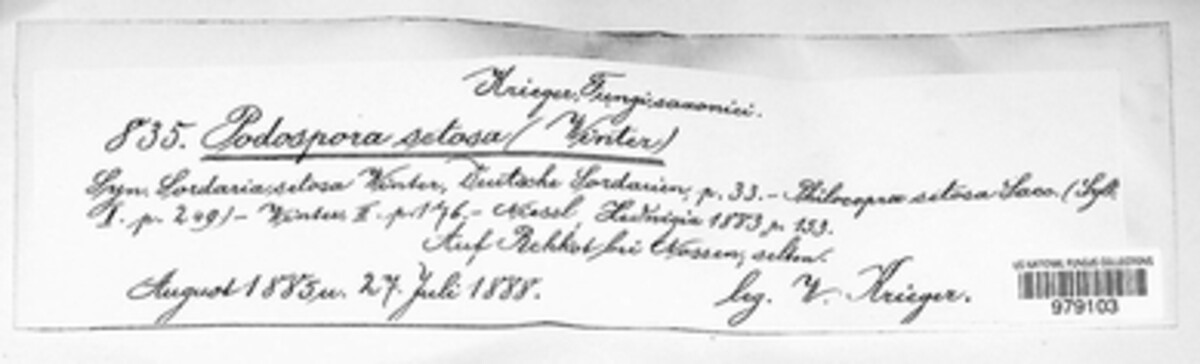 Krieger, Fungi saxonici.
835. Podospora setosa (Winter)
Syn. Sordaria setosa Winter, Deutsche Sordarien, p. 33. – Philocopra setosa Sacc. (Syll.
I. p. 249) – Winter II. p. 176. – Niessl, Hedwigia 1883 p. 153.
Auf Rehkot bei Nossen, selten.
August 1885 u. 27. Juli 1888. leg. W. Krieger.
US NATIONAL FUNGUS COLLECTIONS
979103